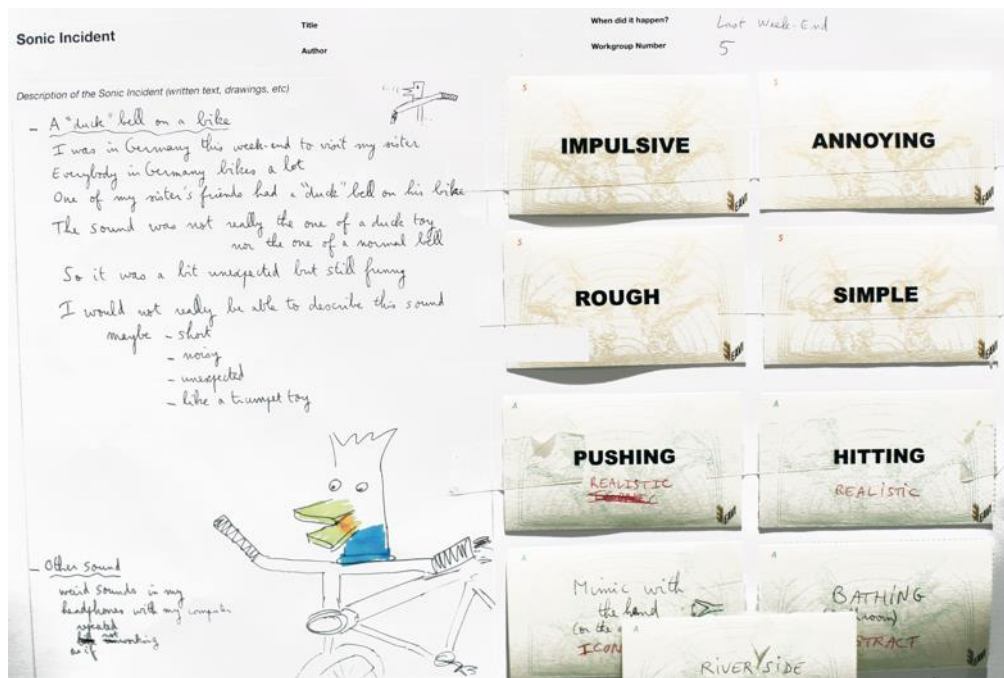 Sonic Incident
Title
Author
When did it happen? Last Week-End
Workgroup Number 5
Description of the Sonic Incident (written text, drawings, etc)
- A "duck" bell on a bike
I was in Germany this week-end to visit my sister
Everybody in Germany bikes a lot
One of my sister's friends had a "duck" bell on his bike
The sound was not really the one of a duck toy
nor the one of a normal bell
So it was a bit unexpected but still funny
I would not really be able to describe this sound
maybe - short
- noisy
- unexpected
- like a trumpet toy
- Other sound
weird sounds in my
headphones with my computer
repeated
as if not working
S
IMPULSIVE
S
ANNOYING
S
ROUGH
S
SIMPLE
A
PUSHING
REALISTIC
A
HITTING
REALISTIC
A
Mimic with
the hand
(or the
ICON
A
BATHING
room)
STRACT
A
RIVER SIDE